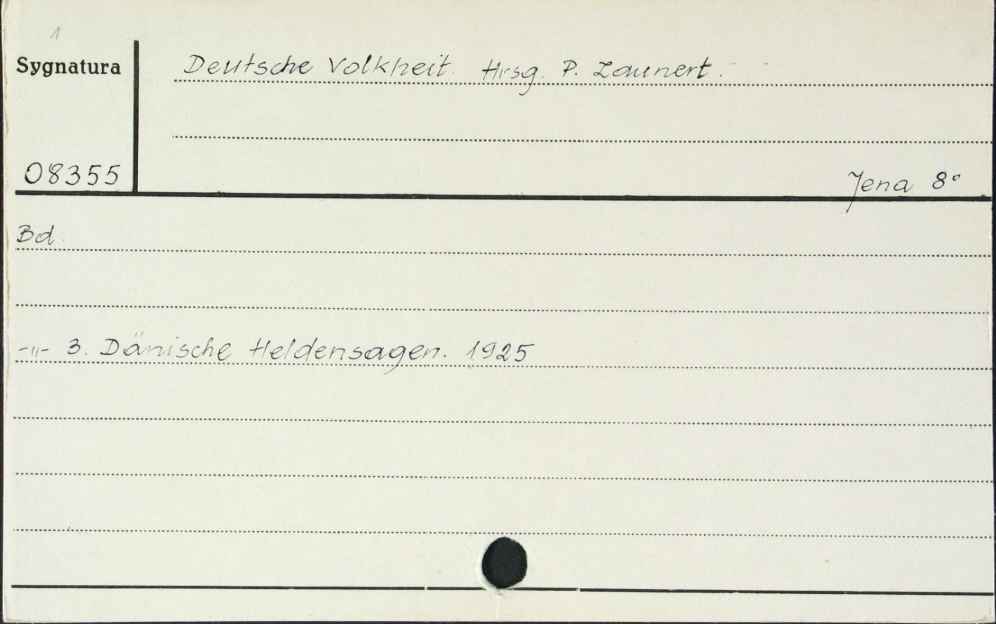 1
Sygnatura
Deutsche Volkheit. Hrsg. P. Zaunert.
08355
Jena 8°
Bd.
-"- 3. Dänische Heldensagen. 1925